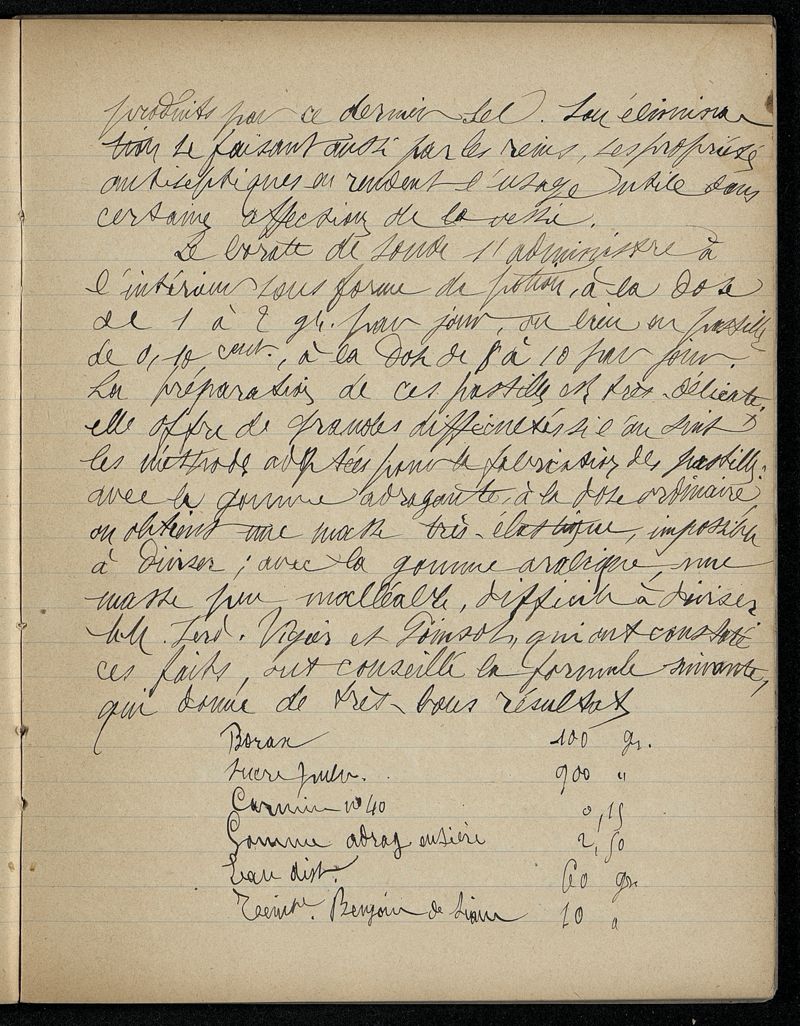 produits par ce dernier sel. Son élimina
tion se faisant aussi par les reins, ses propriétés
antiseptiques en rendent l'usage utile dans
certaines affections de la vessie.
Le borate de soude s'administre à
l'intérieur sous forme de potion, à la dose
de 1 à 2 gr. par jour, ou bien en pastilles
de 0,10 cent., à la dose de 8 à 10 par jour.
La préparation de ces pastilles est très-délicate;
elle offre de grandes difficultés si l'on suit
les méthodes adoptées pour la fabrication des pastilles.
avec la gomme adragante, à la dose ordinaire,
on obtient une masse très-élastique, impossible
à diviser; avec la gomme arabique, une
masse peu malléable, difficile à diviser
MM. Ferd. Vigier et qui ont constaté
ces faits, ont conseillé la formule suivante,
qui donne de très-bons résultats
Borax 100 gr.
Sucre pulv. 900 "
Carmin no 40 0,15
Gomme adrag entière 2,50
Eau dist. 60 gr.
Teintre. Benjoin de Siam 10 "